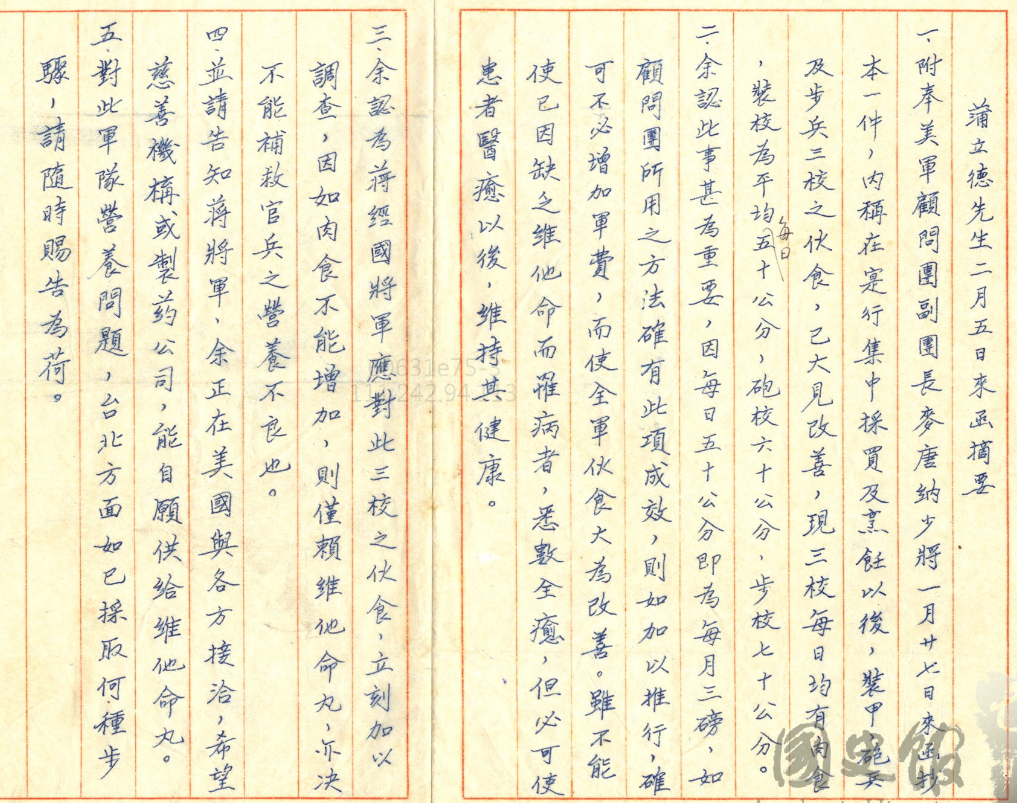 蒲立德先生二月五日來函摘要
一、附奉美軍顧問團副團長麥唐納少將一月廿七日來函抄
本一件,內稱在寔行集中採買及烹飪以後,裝甲砲兵
及步兵三校之伙食,已大見改善,現三校每日均有肉食
,裝校為平均每日五十公分,砲校六十公分,步校七十公分。
二、余認此事甚為重要,因每日五十公分即為每月三磅,如
顧問團所用之方法確有此項成效,則如加以推行,確
可不必增加軍費,而使全軍伙食大為改善。雖不能
使已因缺乏維他命而罹病者,悉數全癒,但必可使
患者醫癒以後,維持其健康。
三、余認為蔣經國將軍應對此三校之伙食,立刻加以
調查,因如肉食不能增加,則僅賴維他命丸,亦決
不能補救官兵之營養不良也。
四、並請告知蔣將軍,余正在美國與各方接洽,希望
慈善機構或製药公司,能自願供給維他命丸。
五、對此軍隊營養問題,台北方面如已採取何種步
驟,請隨時賜告為荷。
國史館